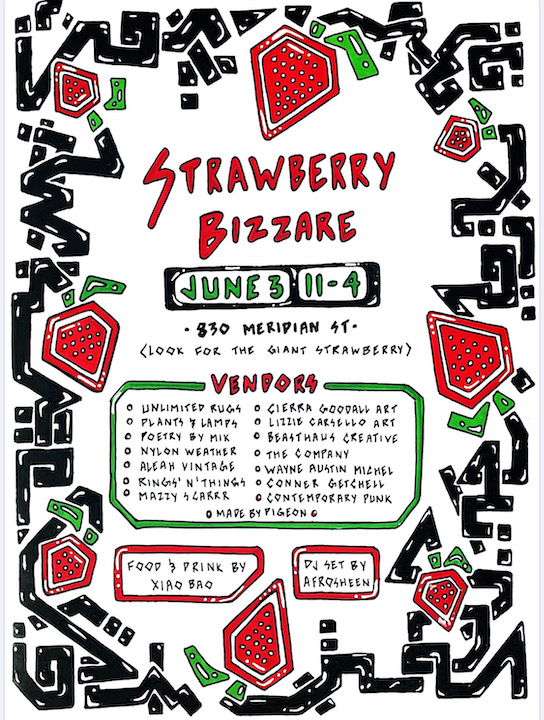 STRAWBERRY
BIZZARE
JUNE 3 11-4
· 830 MERIDIAN ST·
(LOOK FOR THE GIANT STRAWBERRY)
VENDORS
UNLIMITED RUGS
PLANTS & LAMPS
POETRY BY MIK
NYLON WEATHER
ALEAH VINTAGE
RINGS' N' THINGS
MAZZY SCARRR
CIERRA GOODALL ART
LIZZIE CARSELLO ART
BEASTHAUS CREATIVE
THE COMPANY
WAYNE AUSTIN MICHEL
CONNER GETCHELL
CONTEMPORARY PUNK
MADE BY PIGEON
FOOD & DRINK BY
XIAO BAO
DJ SET BY
AFROSHEEN